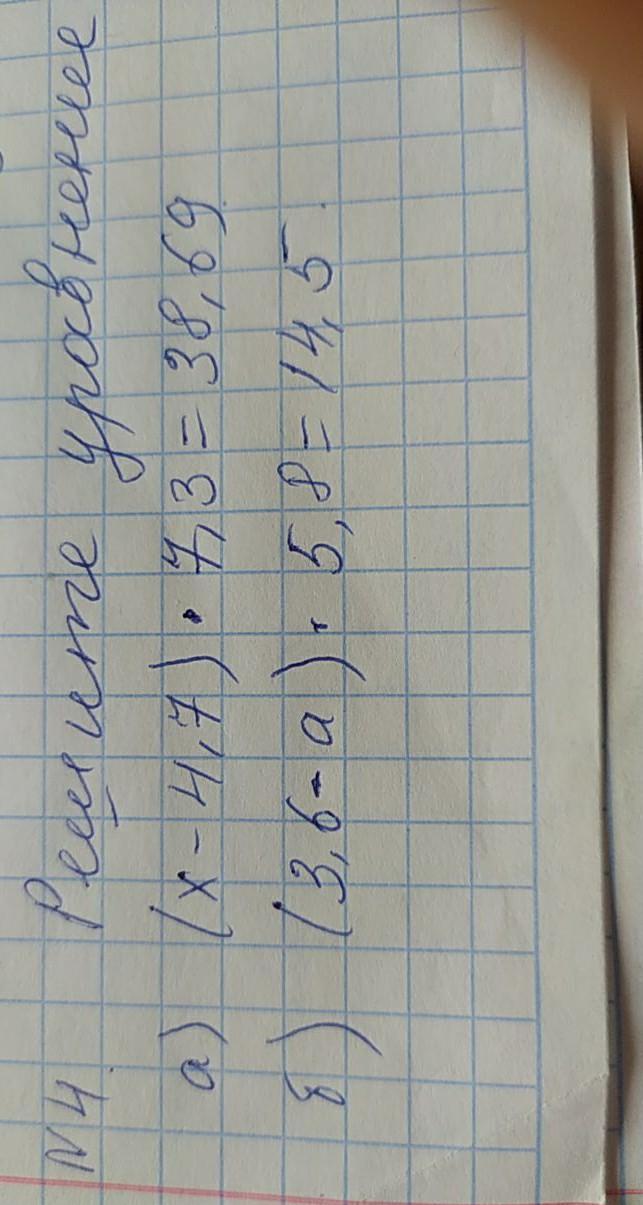 N4 Решите уравнение
а) (x - 4,7) · 7,3 = 38,69
б) (3,6 - a) · 5,8 = 14,5.